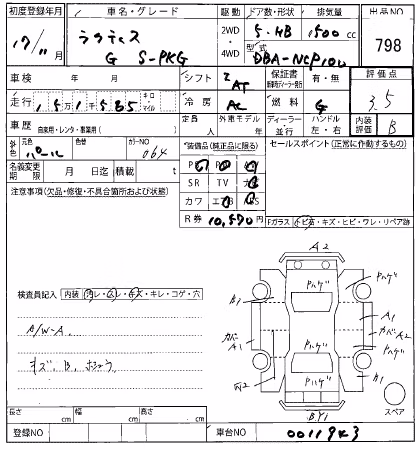 初度登録年月 車名・グレード 駆動 ドア数・形状 排気量 出品NO
17/11 ラクティス 2WD 5.HB 1500cc 798
G S-PKG 4WD 型式 DBA-NCP100
車検 年 月 シフト AT 保証書 有・無 評価点
走行 1 5万1千585 キロ・マイル 冷房 AC 燃料 G 3.5
車歴 自家用・レンタ・事業用( ) 定員 人 外車モデル 年 ディーラー 並行 ハンドル 左・右 内装評価 B
外色 元色 パール 色替 カラーNO 064 装備品(純正品に限る) セールスポイント(正常に作動するもの)
名義変更期限 月 日迄 積載 t PS PW
注意事項(欠品・修復・不具合箇所および状態) SR TV ナビ
カワ エアB ABS
R券 10,570円 Fガラス トビ石・キズ・ヒビ・ワレ・リペア跡
A2
Pハゲ Pハゲ
検査員記入 内装 汚レ・コゲ・キズ・キレ・コゲ・穴 A1
A/W-A. カバーA1 カバーA2
キズ. B.
W2 Pハゲ Pハゲ
B.Y1 スペア
長さ cm 幅 cm 高さ cm
登録NO 車台NO 0011943